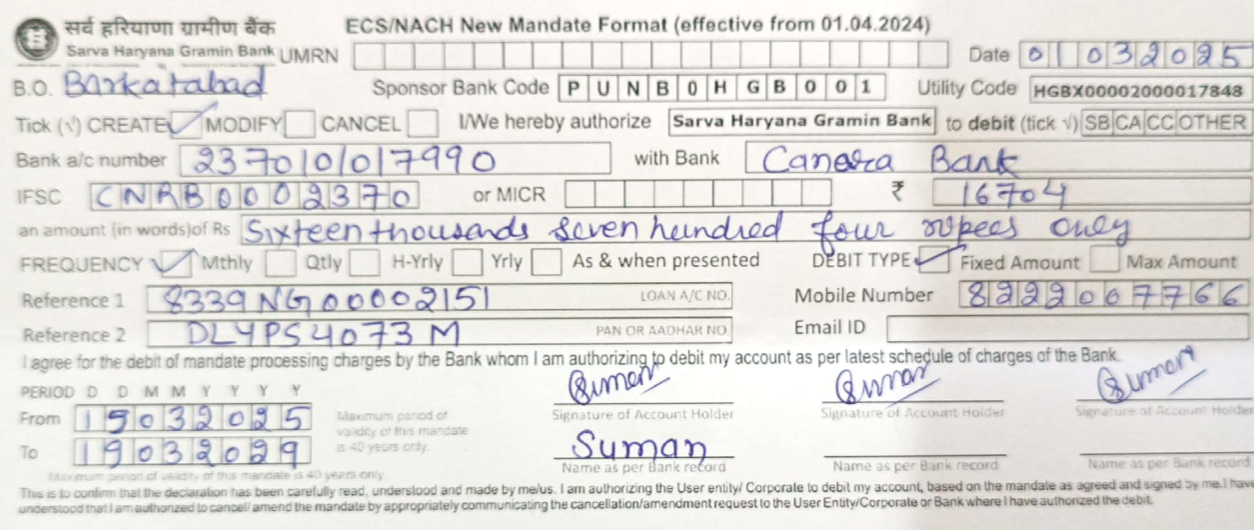 सर्व हरियाणा ग्रामीण बैंक ECS/NACH New Mandate Format (effective from 01.04.2024)
Sarva Haryana Gramin Bank UMRN Date 01032025
B.O. Barkatabad Sponsor Bank Code PUNB0HGB001 Utility Code HGBX00002000017848
Tick (√) CREATE ✓ MODIFY CANCEL I/We hereby authorize Sarva Haryana Gramin Bank to debit (tick √) SB CA CC OTHER
Bank a/c number 2370101017990 with Bank Canara Bank
IFSC CNRB0002370 or MICR ₹ 16704
an amount (in words)of Rs Sixteen thousands seven hundred four rupees only
FREQUENCY ✓ Mthly Qtly H-Yrly Yrly As & when presented DEBIT TYPE ✓ Fixed Amount Max Amount
Reference 1 8339NG00002151 LOAN A/C NO. Mobile Number 8222007766
Reference 2 DLYPS4073M PAN OR AADHAR NO. Email ID
I agree for the debit of mandate processing charges by the Bank whom I am authorizing to debit my account as per latest schedule of charges of the Bank.
PERIOD D D M M Y Y Y Y Suman Suman Suman
From 15032025 Maximum period of validity of this mandate is 40 years only. Signature of Account Holder Signature of Account Holder Signature of Account Holder
To 19032029 Suman
Maximum period of validity of this mandate is 40 years only Name as per Bank record Name as per Bank record Name as per Bank record
This is to confirm that the declaration has been carefully read, understood and made by me/us. I am authorizing the User entity/ Corporate to debit my account, based on the mandate as agreed and signed by me. I have
understood that I am authorized to cancel/ amend the mandate by appropriately communicating the cancellation/amendment request to the User Entity/Corporate or Bank where I have authorized the debit.